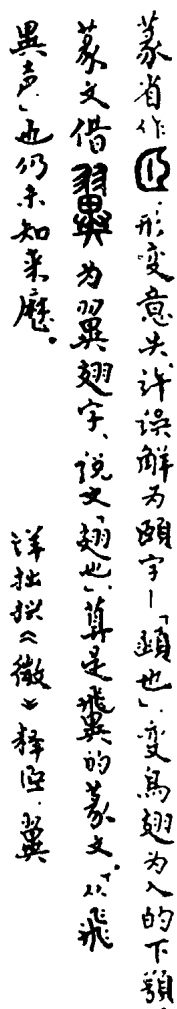 篆省作𦣝.形变意失.许误解为颐字—「顄也」.变鸟翅为人的下颚.
篆文借翼为翼翅字、说文「翅也」、算是飛異的篆文。「从飛
異声」也仍未知来歷。
详拙撰《微》释𦣝.翼